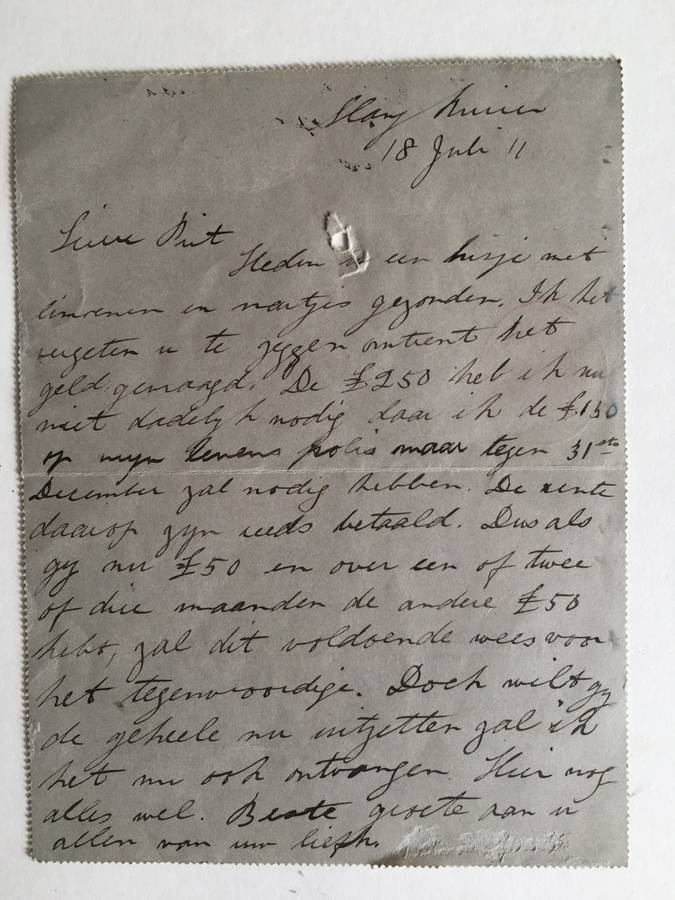 18 Juli 11
Lieve Piet
Heden is een kisje met
limoenen en naartjes gezonden. Ik het
vergeten u te zeggen omtrent het
geld gevraagd. De £250 heb ik nu
niet dadelyk nodig daar ik de £150
op myn levens polis maar tegen 31ste
December zal nodig hebben. De rente
daarop zyn reeds betaald. Dus als
gy nu £50 en over een of twee
of drie maanden de andere £50
hebt, zal dit voldoende wees voor
het tegenwoordige. Doch wilt gy
de geheele nu uitzetten zal ik
het nu ook ontvangen. Hier nog
alles wel. Beste groete aan u
allen van uw liefh.